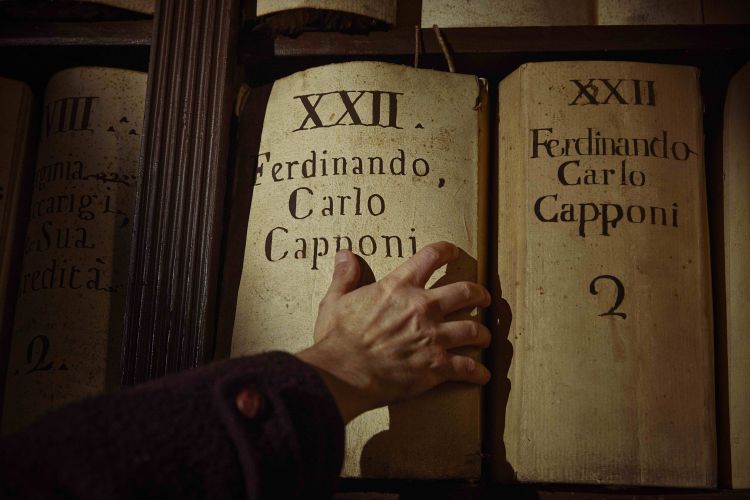 VIII.
ginia
carigi,
Sua
redità
2.
XXII.
Ferdinando,
Carlo
Capponi
XXII
Ferdinando
Carlo
Capponi
2